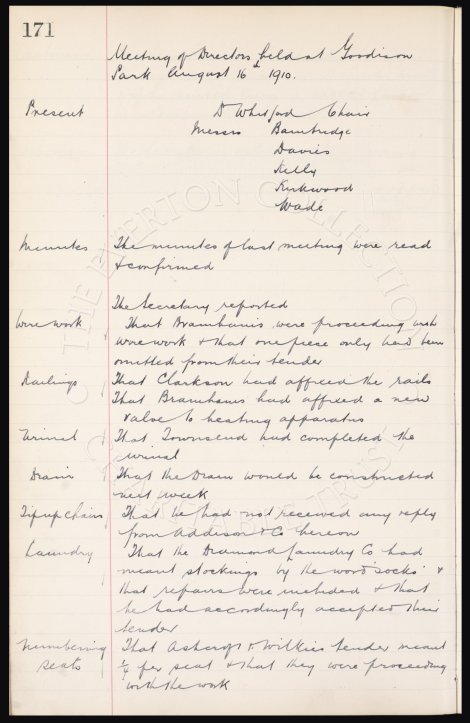 171
Meeting of Directors held at Goodison
Park August 16th 1910.
Present Dr Whitford Chair
Messrs Bainbridge
Davies
Kelly
Kirkwood
Wade
Minutes The minutes of last meeting were read
& confirmed
The Secretary reported
Wire work That Bramhams were proceeding with
wire work & that one piece only had been
omitted from their tender
Railings That Clarkson had affixed the rails
That Bramhams had affixed a new
valve to heating apparatus
Urinal That Townsend had completed the
urinal
Drain That the Drain would be constructed
next week
Tip up chairs That he had not received any reply
from Addison & Co thereon
Laundry That the Diamond Laundry Co had
meant stockings by the word "socks" &
that repairs were included & that
he had accordingly accepted their
tender
Numbering That Ashcroft & Wilkies tender meant
seats per seat & that they were proceeding
with the work
THE EVERTON COLLECTION
CHARITABLE TRUST